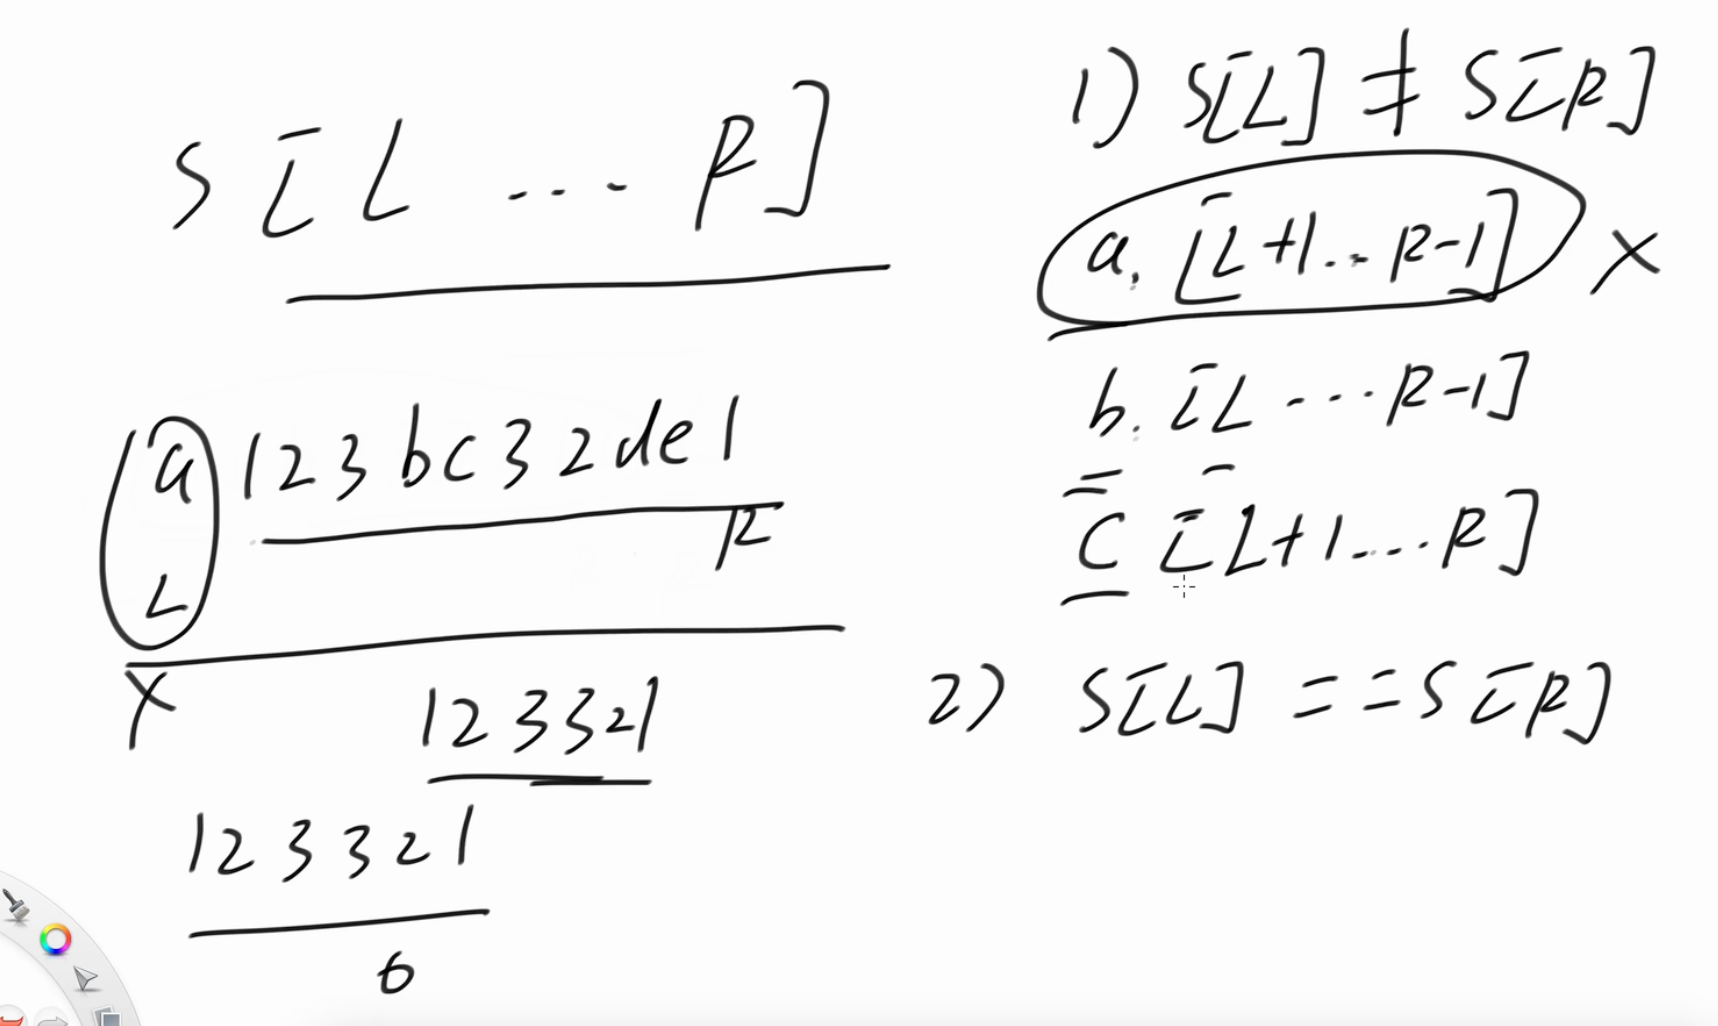 S[L ... R]
a123bc32de1
L R
X
123321
123321
6
1) S[L] ≠ S[R]
a. [L+1...R-1] X
b. [L...R-1]
C [L+1...R]
2) S[L] == S[R]